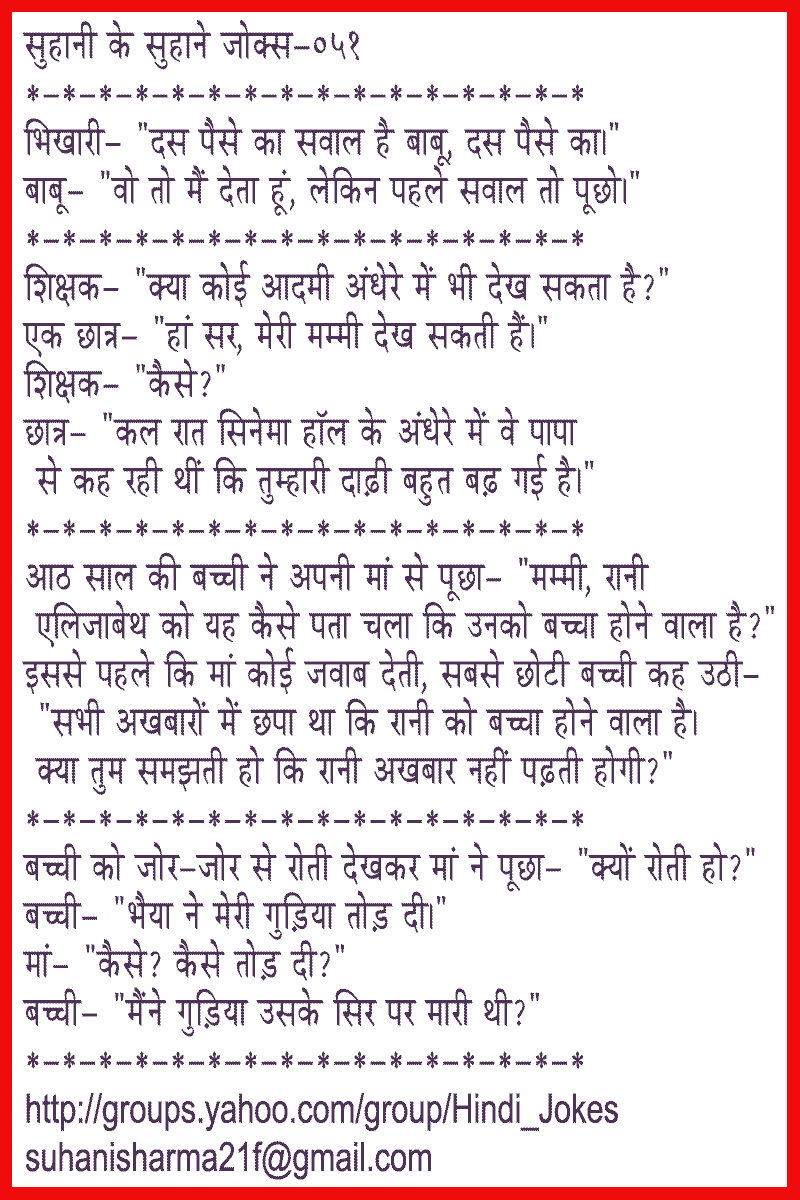 सुहानी के सुहाने जोक्स-०५१
*-*-*-*-*-*-*-*-*-*-*-*-*-*-*-*
भिखारी- "दस पैसे का सवाल है बाबू, दस पैसे का।"
बाबू- "वो तो मैं देता हूं, लेकिन पहले सवाल तो पूछो।"
*-*-*-*-*-*-*-*-*-*-*-*-*-*-*-*
शिक्षक- "क्या कोई आदमी अंधेरे में भी देख सकता है?"
एक छात्र- "हां सर, मेरी मम्मी देख सकती हैं।"
शिक्षक- "कैसे?"
छात्र- "कल रात सिनेमा हॉल के अंधेरे में वे पापा
से कह रही थीं कि तुम्हारी दाढ़ी बहुत बढ़ गई है।"
*-*-*-*-*-*-*-*-*-*-*-*-*-*-*-*
आठ साल की बच्ची ने अपनी मां से पूछा- "मम्मी, रानी
एलिजाबेथ को यह कैसे पता चला कि उनको बच्चा होने वाला है?"
इससे पहले कि मां कोई जवाब देती, सबसे छोटी बच्ची कह उठी-
"सभी अखबारों में छपा था कि रानी को बच्चा होने वाला है।
क्या तुम समझती हो कि रानी अखबार नहीं पढ़ती होगी?"
*-*-*-*-*-*-*-*-*-*-*-*-*-*-*-*
बच्ची को जोर-जोर से रोती देखकर मां ने पूछा- "क्यों रोती हो?"
बच्ची- "भैया ने मेरी गुड़िया तोड़ दी।"
मां- "कैसे? कैसे तोड़ दी?"
बच्ची- "मैंने गुड़िया उसके सिर पर मारी थी?"
*-*-*-*-*-*-*-*-*-*-*-*-*-*-*-*
http://groups.yahoo.com/group/Hindi_Jokes
suhanisharma21f@gmail.com